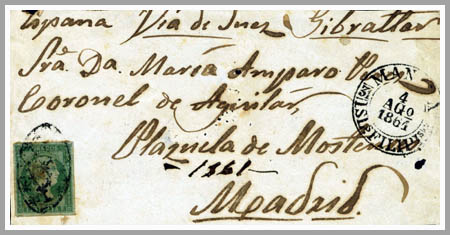 España Via de Suez Gibraltar
Sra. Da. Maria Amparo
Coronel de Aguilar,
Plazuela de Mosten
- 1861 -
Madrid.
MANILA
4
AGO
1864
ISLAS FILIPINAS